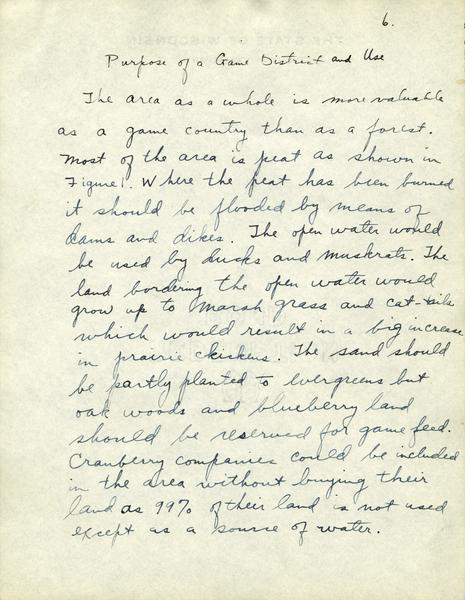 6.
Purpose of a Game District and Use
The area as a whole is more valuable
as a game country than as a forest.
Most of the area is peat as shown in
Figure 1. Where the peat has been burned
it should be flooded by means of
dams and dikes. The open water would
be used by ducks and muskrats. The
land bordering the open water would
grow up to marsh grass and cat-tails
which would result in a big increase
in prairie chickens. The sand should
be partly planted to evergreens but
oak woods and blueberry land
should be reserved for game feed.
Cranberry companies could be included
in the area without buying their
land as 99% of their land is not used
except as a source of water.